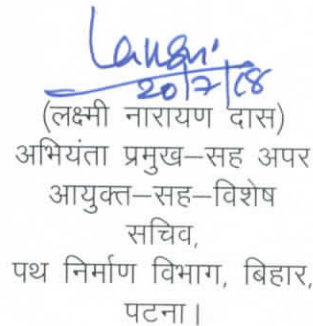 20/7/18
(लक्ष्मी नारायण दास)
अभियंता प्रमुख–सह अपर
आयुक्त–सह–विशेष
सचिव,
पथ निर्माण विभाग, बिहार,
पटना।